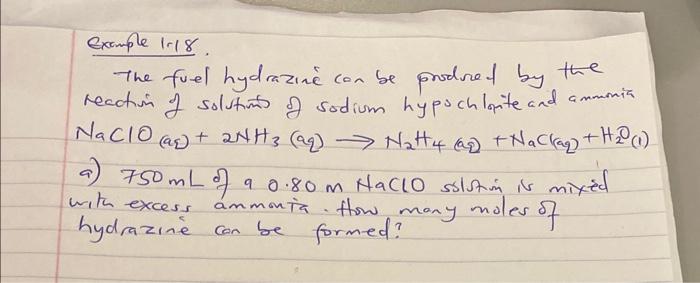 Example 1.18.
The fuel hydrazine can be produced by the
reaction of solutions of sodium hypochlorite and ammonia
NaClO (aq) + 2NH3 (aq) → N2H4 (aq) + NaCl(aq) + H2O(l)
a) 750 mL of a 0.80 m NaClO solution is mixed
with excess ammonia. How many moles of
hydrazine can be formed?